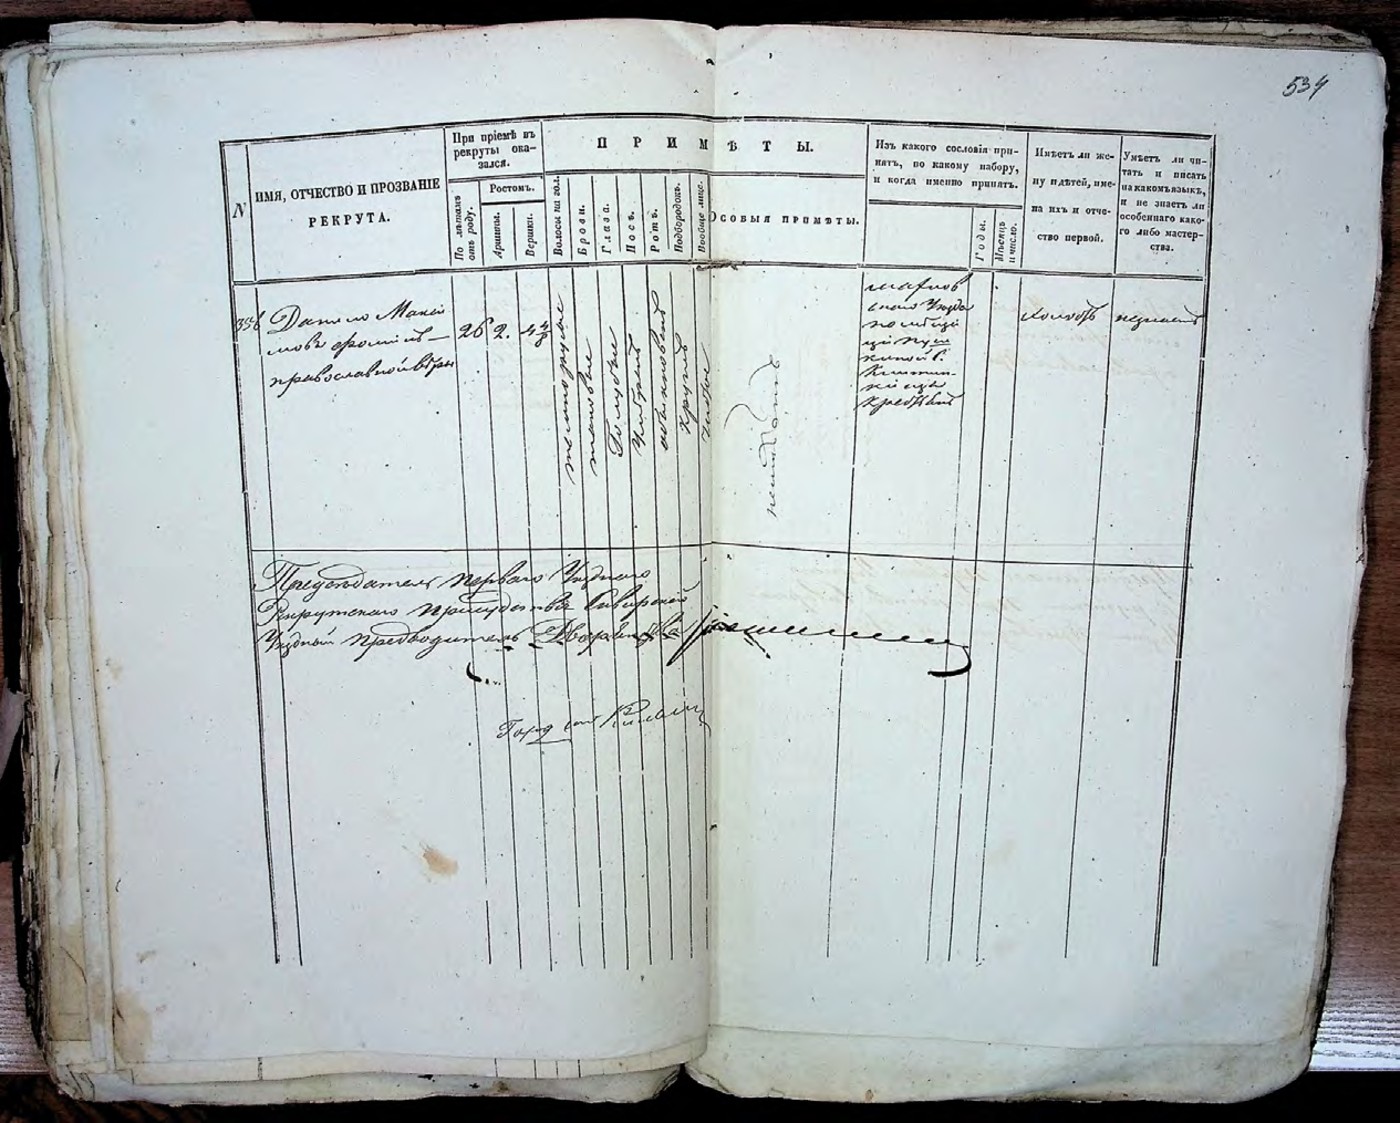 534
N
ИМЯ, ОТЧЕСТВО И ПРОЗВАНІЕ
РЕКРУТА.
При пріемѣ въ
рекруты ока-
зался.
По лѣтамъ
отъ роду.
Ростомъ.
Аршины.
Вершки.
П Р И М Ѣ Т Ы.
Волосы на гол.
Брови.
Глаза.
Носъ.
Ротъ.
Подбородокъ.
Вообще лице.
Особыя примѣты.
Изъ какого сословія при-
нятъ, по какому набору,
и когда именно принятъ.
Годы.
Мѣсяцъ
и число.
Имѣетъ ли же-
ну и дѣтей, име-
на ихъ и отче-
ство первой.
Умѣетъ ли чи-
тать и писать
на какомъ языкѣ,
и не знаетъ ли
особеннаго како-
го либо мастер-
ства.
356
Данило Макси
мовъ
православной вѣры
26
2.
4 4/8
темнорусые
таковые
Голубые
умѣренъ
обыкновенъ
круглъ
чистое
уѣзда
помѣщи
цы
крестьянъ
холостъ
незнаетъ
Председатель перваго Уѣзднаго
Рекрутскаго присутствія Симбирской
Уѣздный предводитель Дворянства